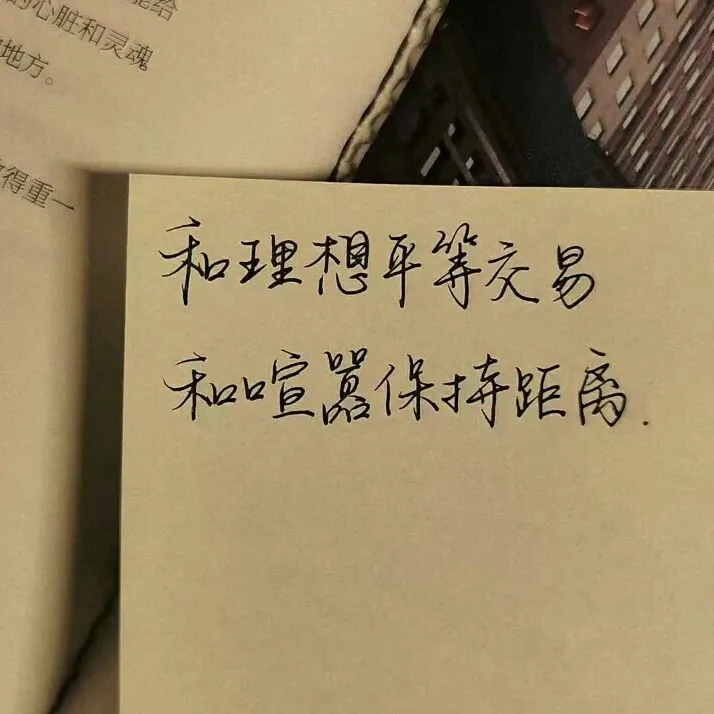 能给
的心脏和灵魂
地方。
得重一
和理想平等交易
和喧嚣保持距离.